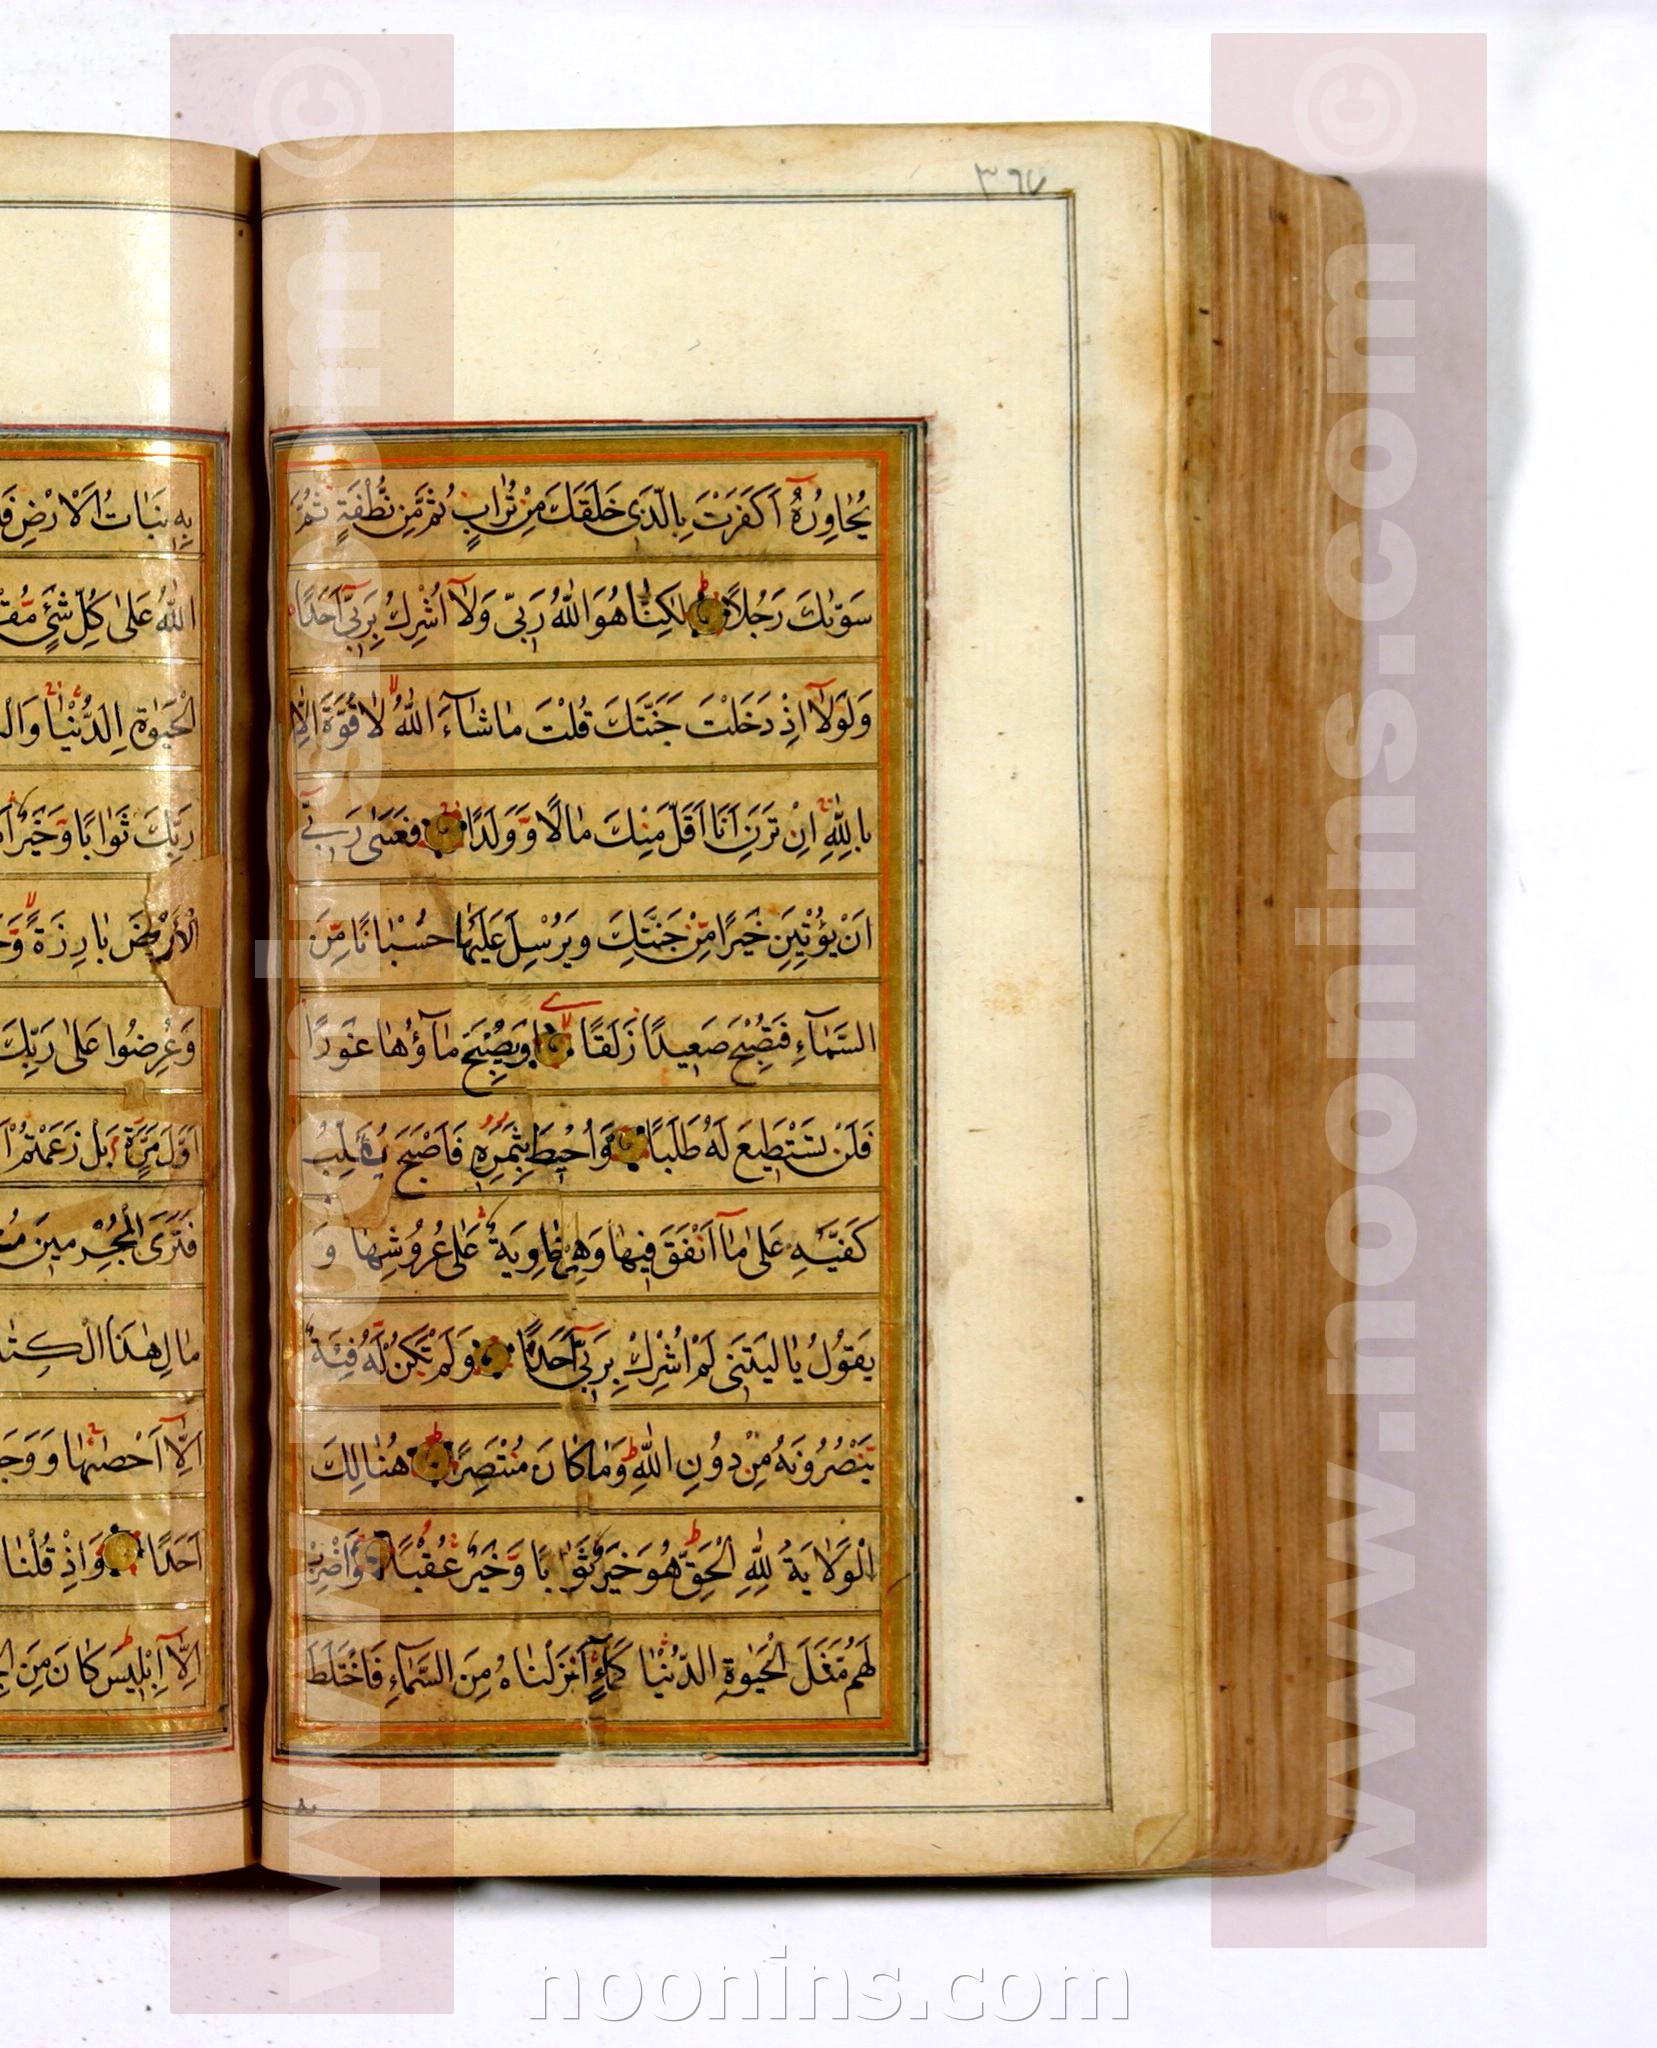 ۳۶۷
يُحَاوِرُهُ أَكَفَرْتَ بِالَّذِي خَلَقَكَ مِنْ تُرَابٍ ثُمَّ مِنْ نُطْفَةٍ ثُمَّ
سَوّٰىكَ رَجُلًا لٰكِنَّا هُوَ اللّٰهُ رَبِّي وَلَآ اُشْرِكُ بِرَبِّيٓ اَحَدًا
وَلَوْلَآ اِذْ دَخَلْتَ جَنَّتَكَ قُلْتَ مَا شَآءَ اللّٰهُ لَا قُوَّةَ اِلَّا
بِاللّٰهِ اِنْ تَرَنِ اَنَا اَقَلَّ مِنْكَ مَالًا وَوَلَدًا فَعَسٰى رَبِّيٓ
اَنْ يُؤْتِيَنِ خَيْرًا مِنْ جَنَّتِكَ وَيُرْسِلَ عَلَيْهَا حُسْبَانًا مِنَ
السَّمَآءِ فَتُصْبِحَ صَعِيدًا زَلَقًا اَوْ يُصْبِحَ مَآؤُهَا غَوْرًا
فَلَنْ تَسْتَطِيعَ لَهُ طَلَبًا وَاُحِيطَ بِثَمَرِهِ فَاَصْبَحَ يُقَلِّبُ
كَفَّيْهِ عَلٰى مَآ اَنْفَقَ فِيهَا وَهِيَ خَاوِيَةٌ عَلٰى عُرُوشِهَا وَ
يَقُولُ يَا لَيْتَنِي لَمْ اُشْرِكْ بِرَبِّيٓ اَحَدًا وَلَمْ تَكُنْ لَهُ فِئَةٌ
يَنْصُرُونَهُ مِنْ دُونِ اللّٰهِ وَمَا كَانَ مُنْتَصِرًا هُنَالِكَ
الْوَلَايَةُ لِلّٰهِ الْحَقِّ هُوَ خَيْرٌ ثَوَابًا وَخَيْرٌ عُقْبًا وَاضْرِبْ
لَهُمْ مَثَلَ الْحَيٰوةِ الدُّنْيَا كَمَآءٍ اَنْزَلْنَاهُ مِنَ السَّمَآءِ فَاخْتَلَطَ
بِهِ نَبَاتُ الْاَرْضِ
اللّٰهُ عَلٰى كُلِّ شَيْءٍ
الْحَيٰوةِ الدُّنْيَا
رَبِّكَ ثَوَابًا وَخَيْرٌ
الْاَرْضَ بَارِزَةً
وَعُرِضُوا عَلٰى رَبِّكَ
اَوَّلَ مَرَّةٍ بَلْ زَعَمْتُمْ
فَتَرَى الْمُجْرِمِينَ
مَالِ هٰذَا الْكِتَا
اِلَّآ اَحْصٰىهَا وَوَجَ
اَحَدًا وَاِذْ قُلْنَا
اِلَّآ اِبْلِيسَ كَانَ مِنَ
© www.noonins.com
© www.noonins.com
noonins.com